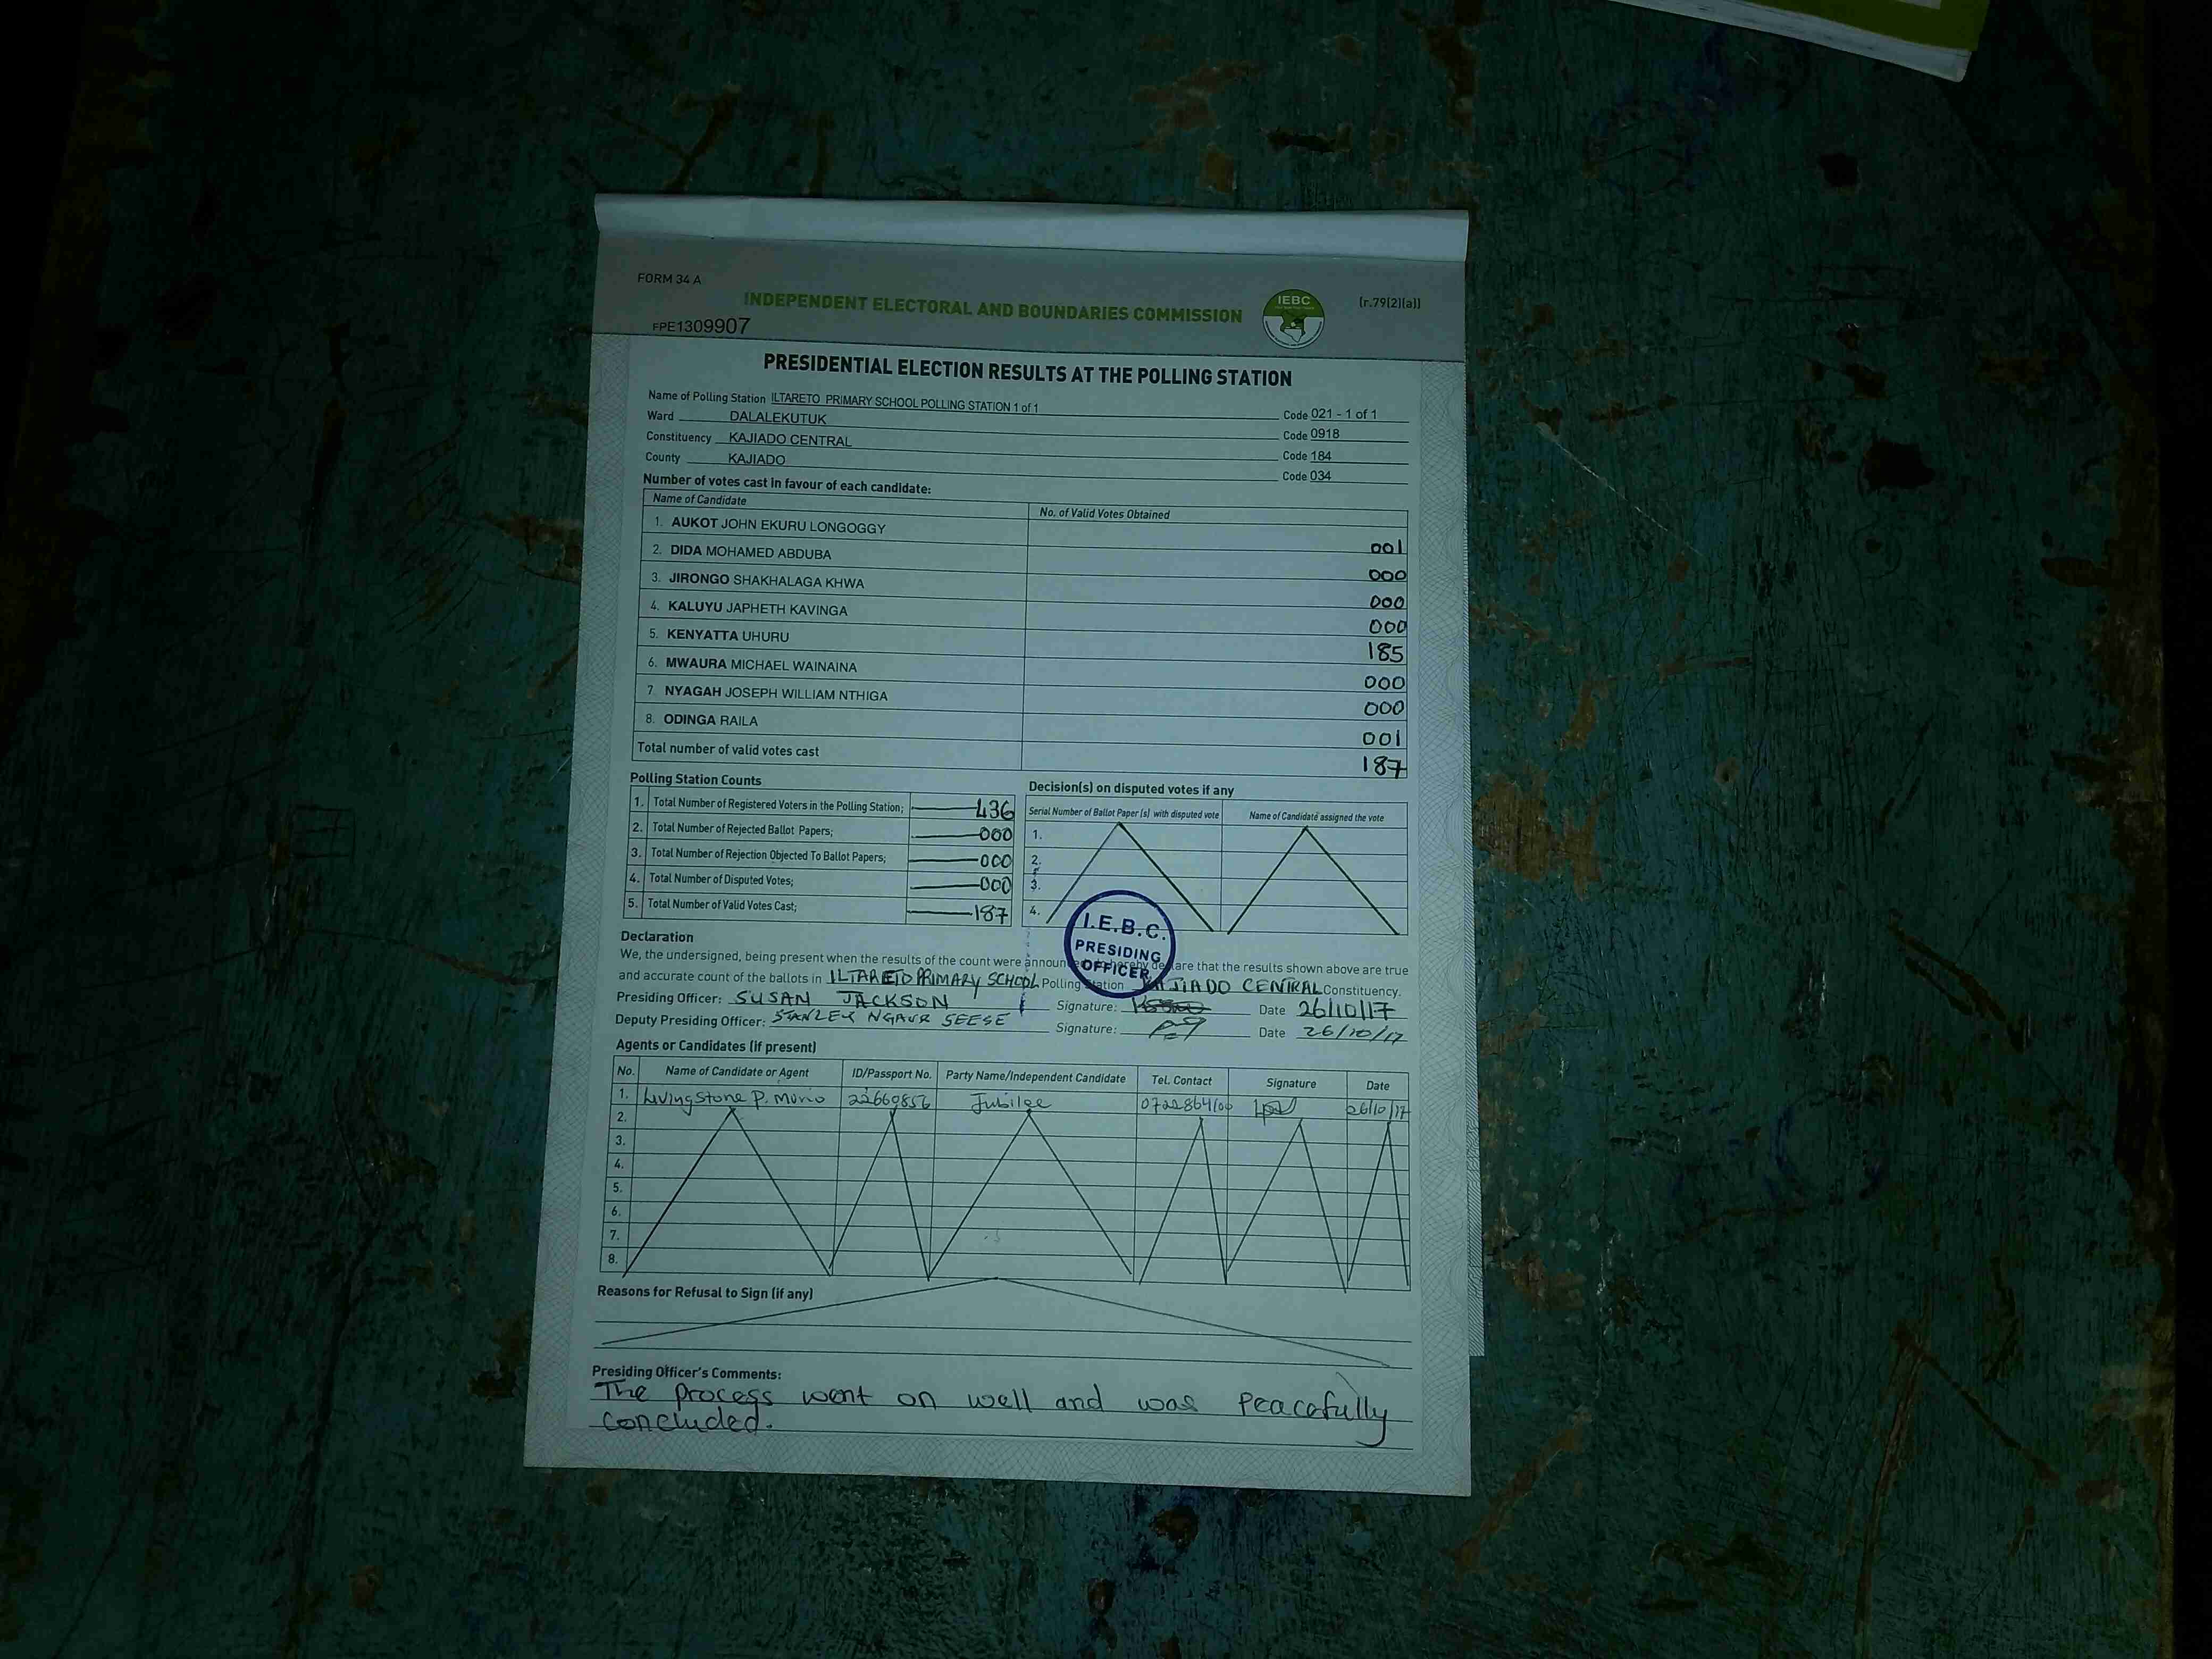 FORM 34 A
INDEPENDENT ELECTORAL AND BOUNDARIES COMMISSION
IEBC
(r.79(2)(a))
FPE1309907
PRESIDENTIAL ELECTION RESULTS AT THE POLLING STATION
Name of Polling Station ILTARETO PRIMARY SCHOOL POLLING STATION 1 of 1 Code 021 - 1 of 1
Ward DALALEKUTUK Code 0918
Constituency KAJIADO CENTRAL Code 184
County KAJIADO Code 034
Number of votes cast in favour of each candidate:
Name of Candidate No. of Valid Votes Obtained
1. AUKOT JOHN EKURU LONGOGGY 001
2. DIDA MOHAMED ABDUBA 000
3. JIRONGO SHAKHALAGA KHWA 000
4. KALUYU JAPHETH KAVINGA 000
5. KENYATTA UHURU 185
6. MWAURA MICHAEL WAINAINA 000
7. NYAGAH JOSEPH WILLIAM NTHIGA 000
8. ODINGA RAILA 001
Total number of valid votes cast 187
Polling Station Counts
1. Total Number of Registered Voters in the Polling Station; 436
2. Total Number of Rejected Ballot Papers; 000
3. Total Number of Rejection Objected To Ballot Papers; 000
4. Total Number of Disputed Votes; 000
5. Total Number of Valid Votes Cast; 187
Decision(s) on disputed votes if any
Serial Number of Ballot Paper (s) with disputed vote Name of Candidate assigned the vote
1.
2.
3.
4.
I.E.B.C.
PRESIDING
OFFICER
Declaration
We, the undersigned, being present when the results of the count were announced do hereby declare that the results shown above are true
and accurate count of the ballots in ILTARETO PRIMARY SCHOOL Polling Station KAJIADO CENTRAL Constituency.
Presiding Officer: SUSAN JACKSON Signature: Date 26/10/17
Deputy Presiding Officer: STANLEY SEESE Signature: Date 26/10/17
Agents or Candidates (if present)
No. Name of Candidate or Agent ID/Passport No. Party Name/Independent Candidate Tel. Contact Signature Date
1. Livingstone P. 22669856 Jubilee 26/10/17
2.
3.
4.
5.
6.
7.
8.
Reasons for Refusal to Sign (if any)
Presiding Officer's Comments:
The process went on well and was Peacefully
concluded.